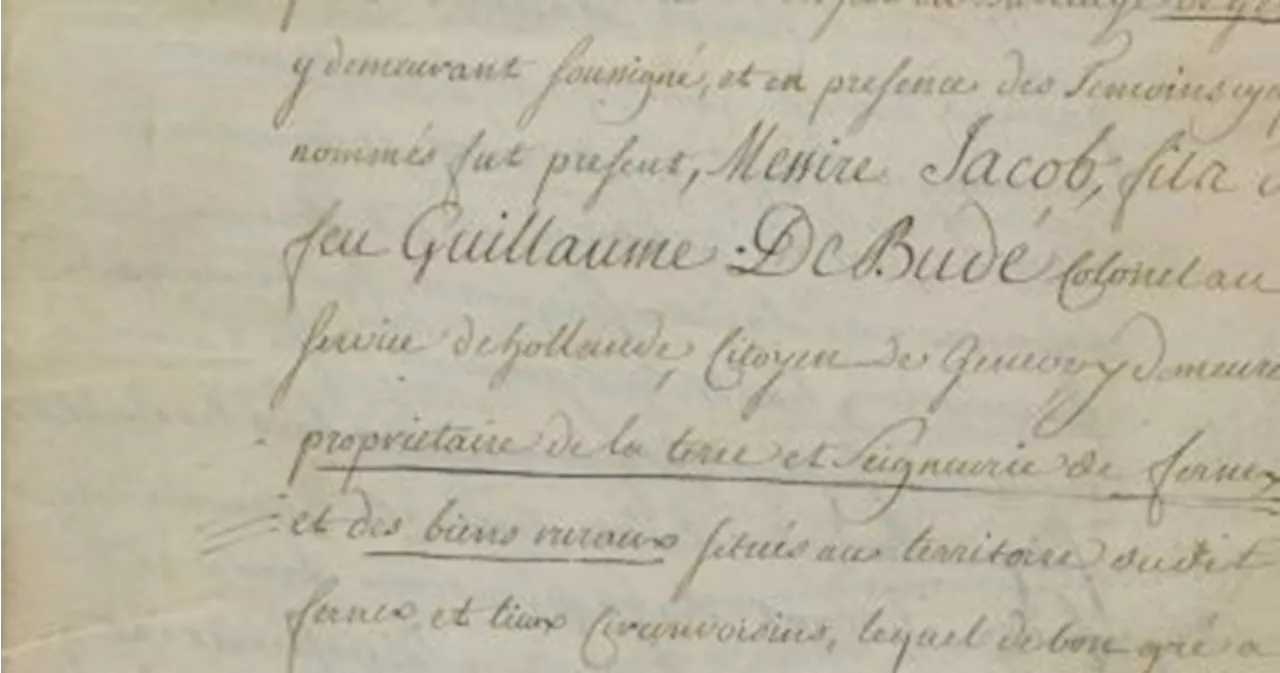 y demeurant soussigné, et en presence des Temoins cy
nommés fut present, Messire Jacob, fils
feu Guillaume De Budé Colonel au
service de hollande, Citoyen de Geneve y demeura
proprietaire de la terre et Seigneurie de fernex
et des biens ruraux situés au territoire dudit
fernex et lieux Circonvoisins, lequel de bon gré a